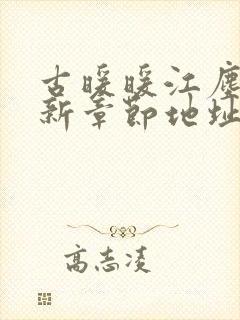 古暖暖江塵
新章節地址
高志凌